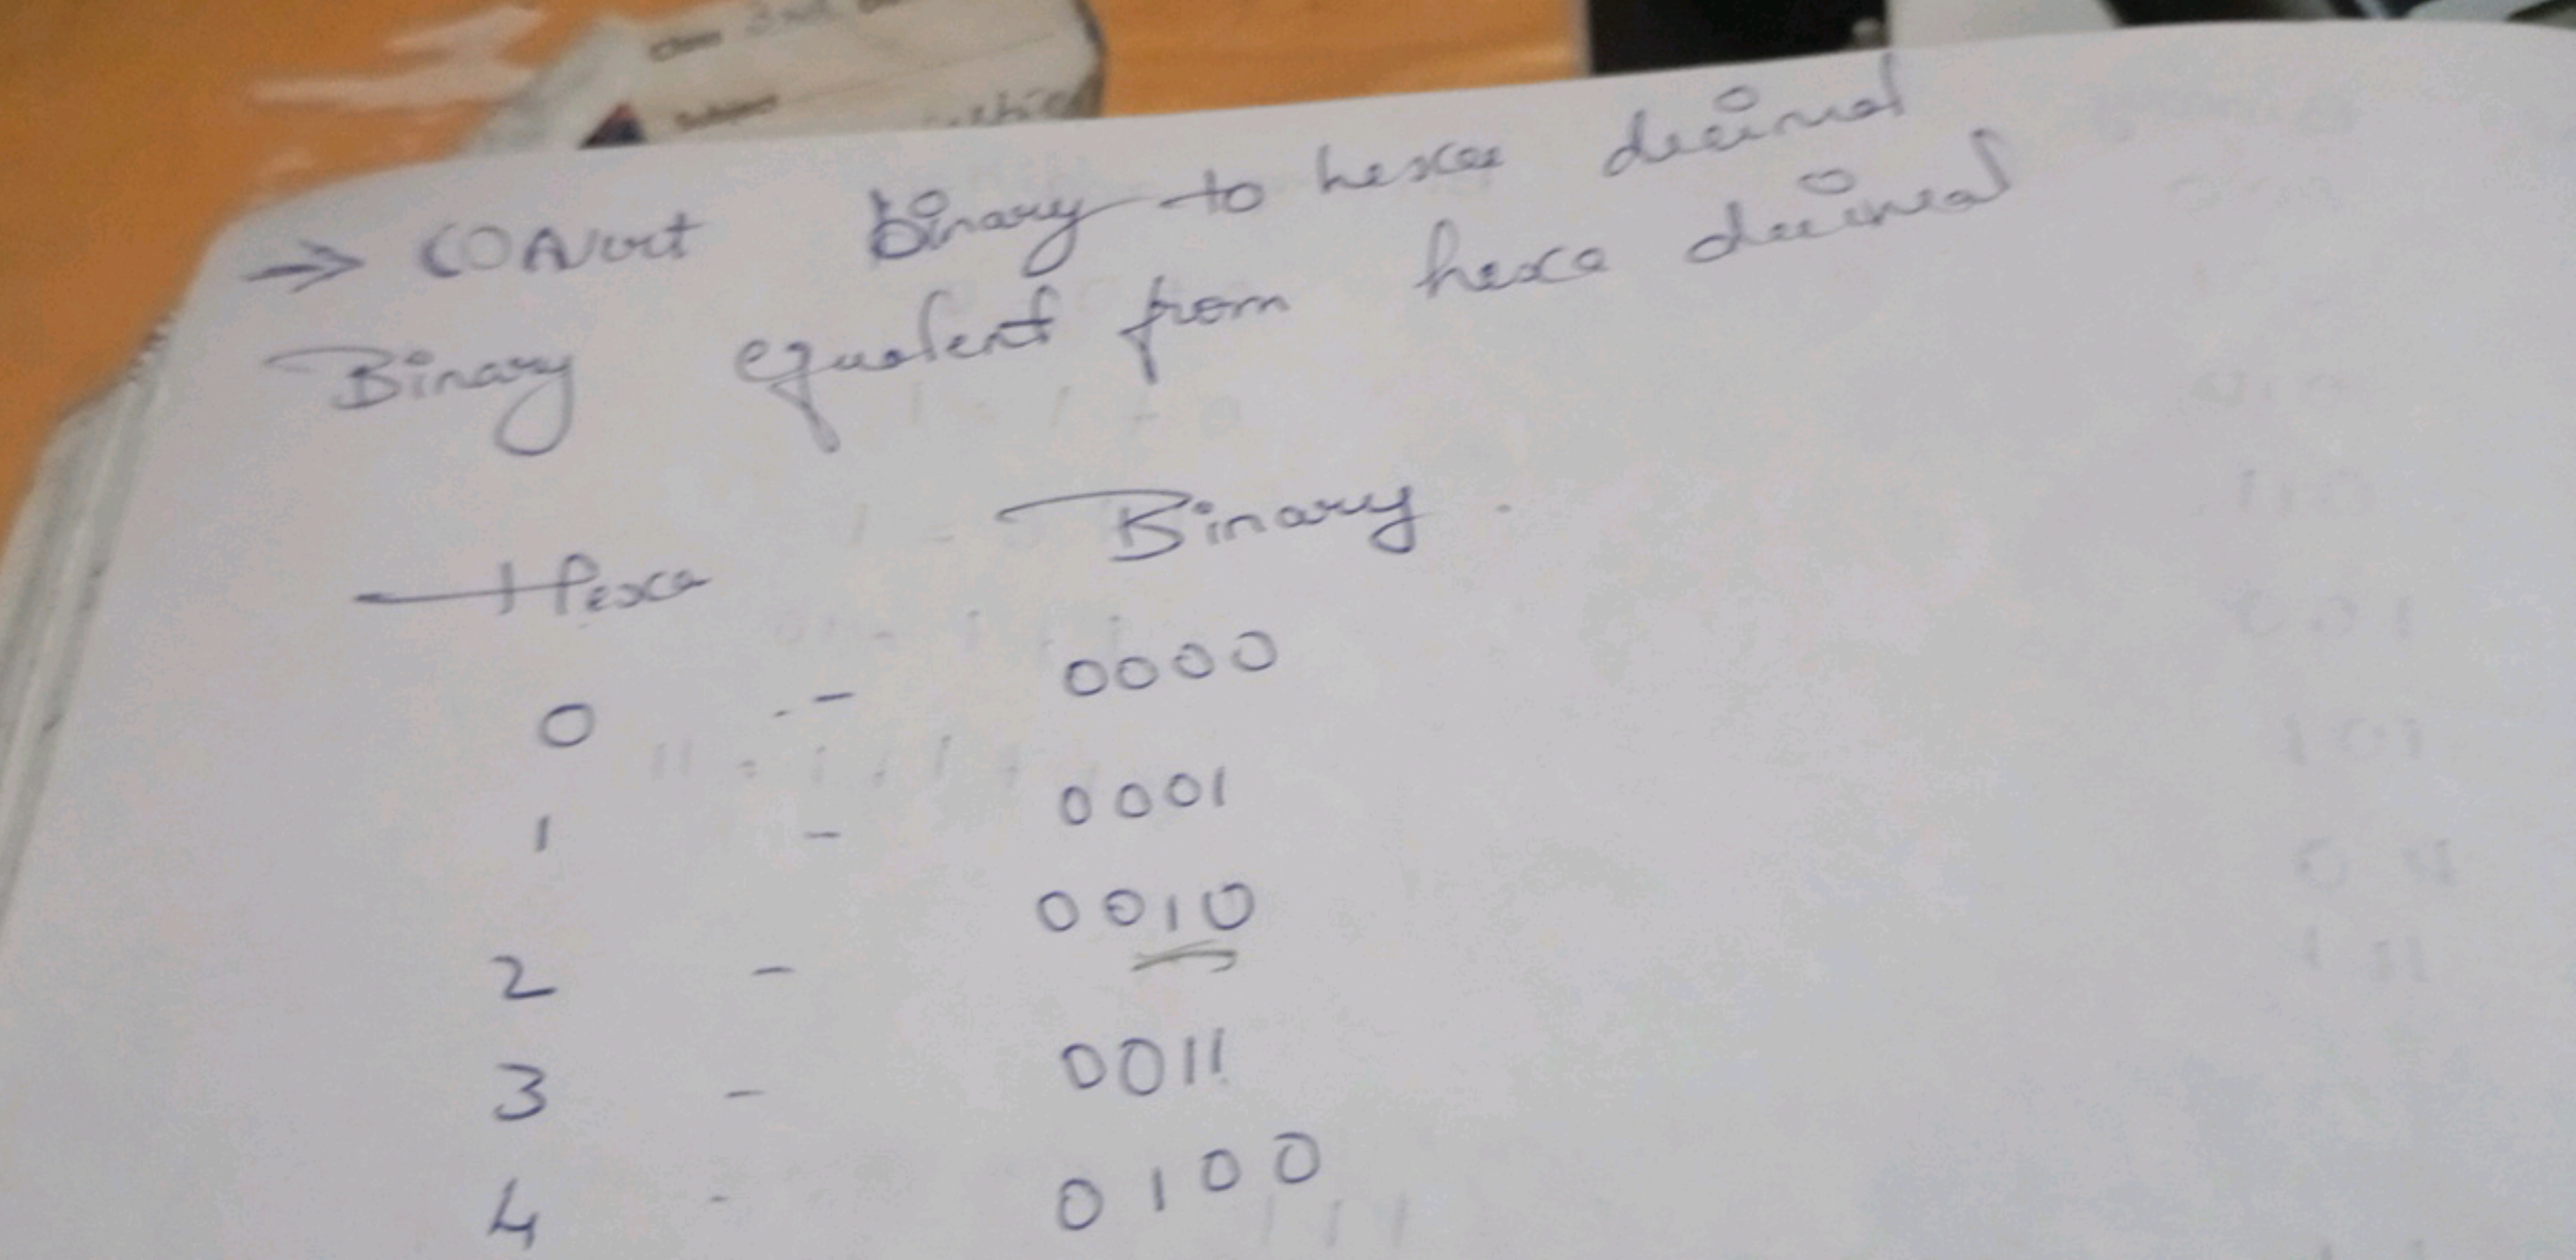 Class
Subject
→ CONvert binary to hexa decimal
Binary equalent from hexa decimal
Hexa Binary
0 - 0000
1 - 0001
2 - 0010
3 - 0011
4 - 0100